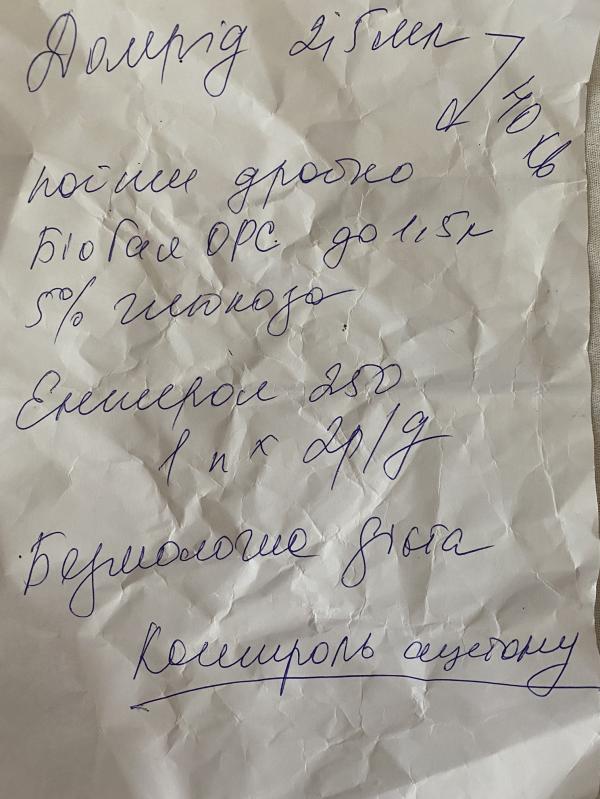 Домрід 2,5мл
40 хв
поїти дробно
БіоГая ОРС до 1,5л
5% глюкоза
Ентерол 250
1 п х 2р/д
Безмолочна дієта
Контроль ацетону